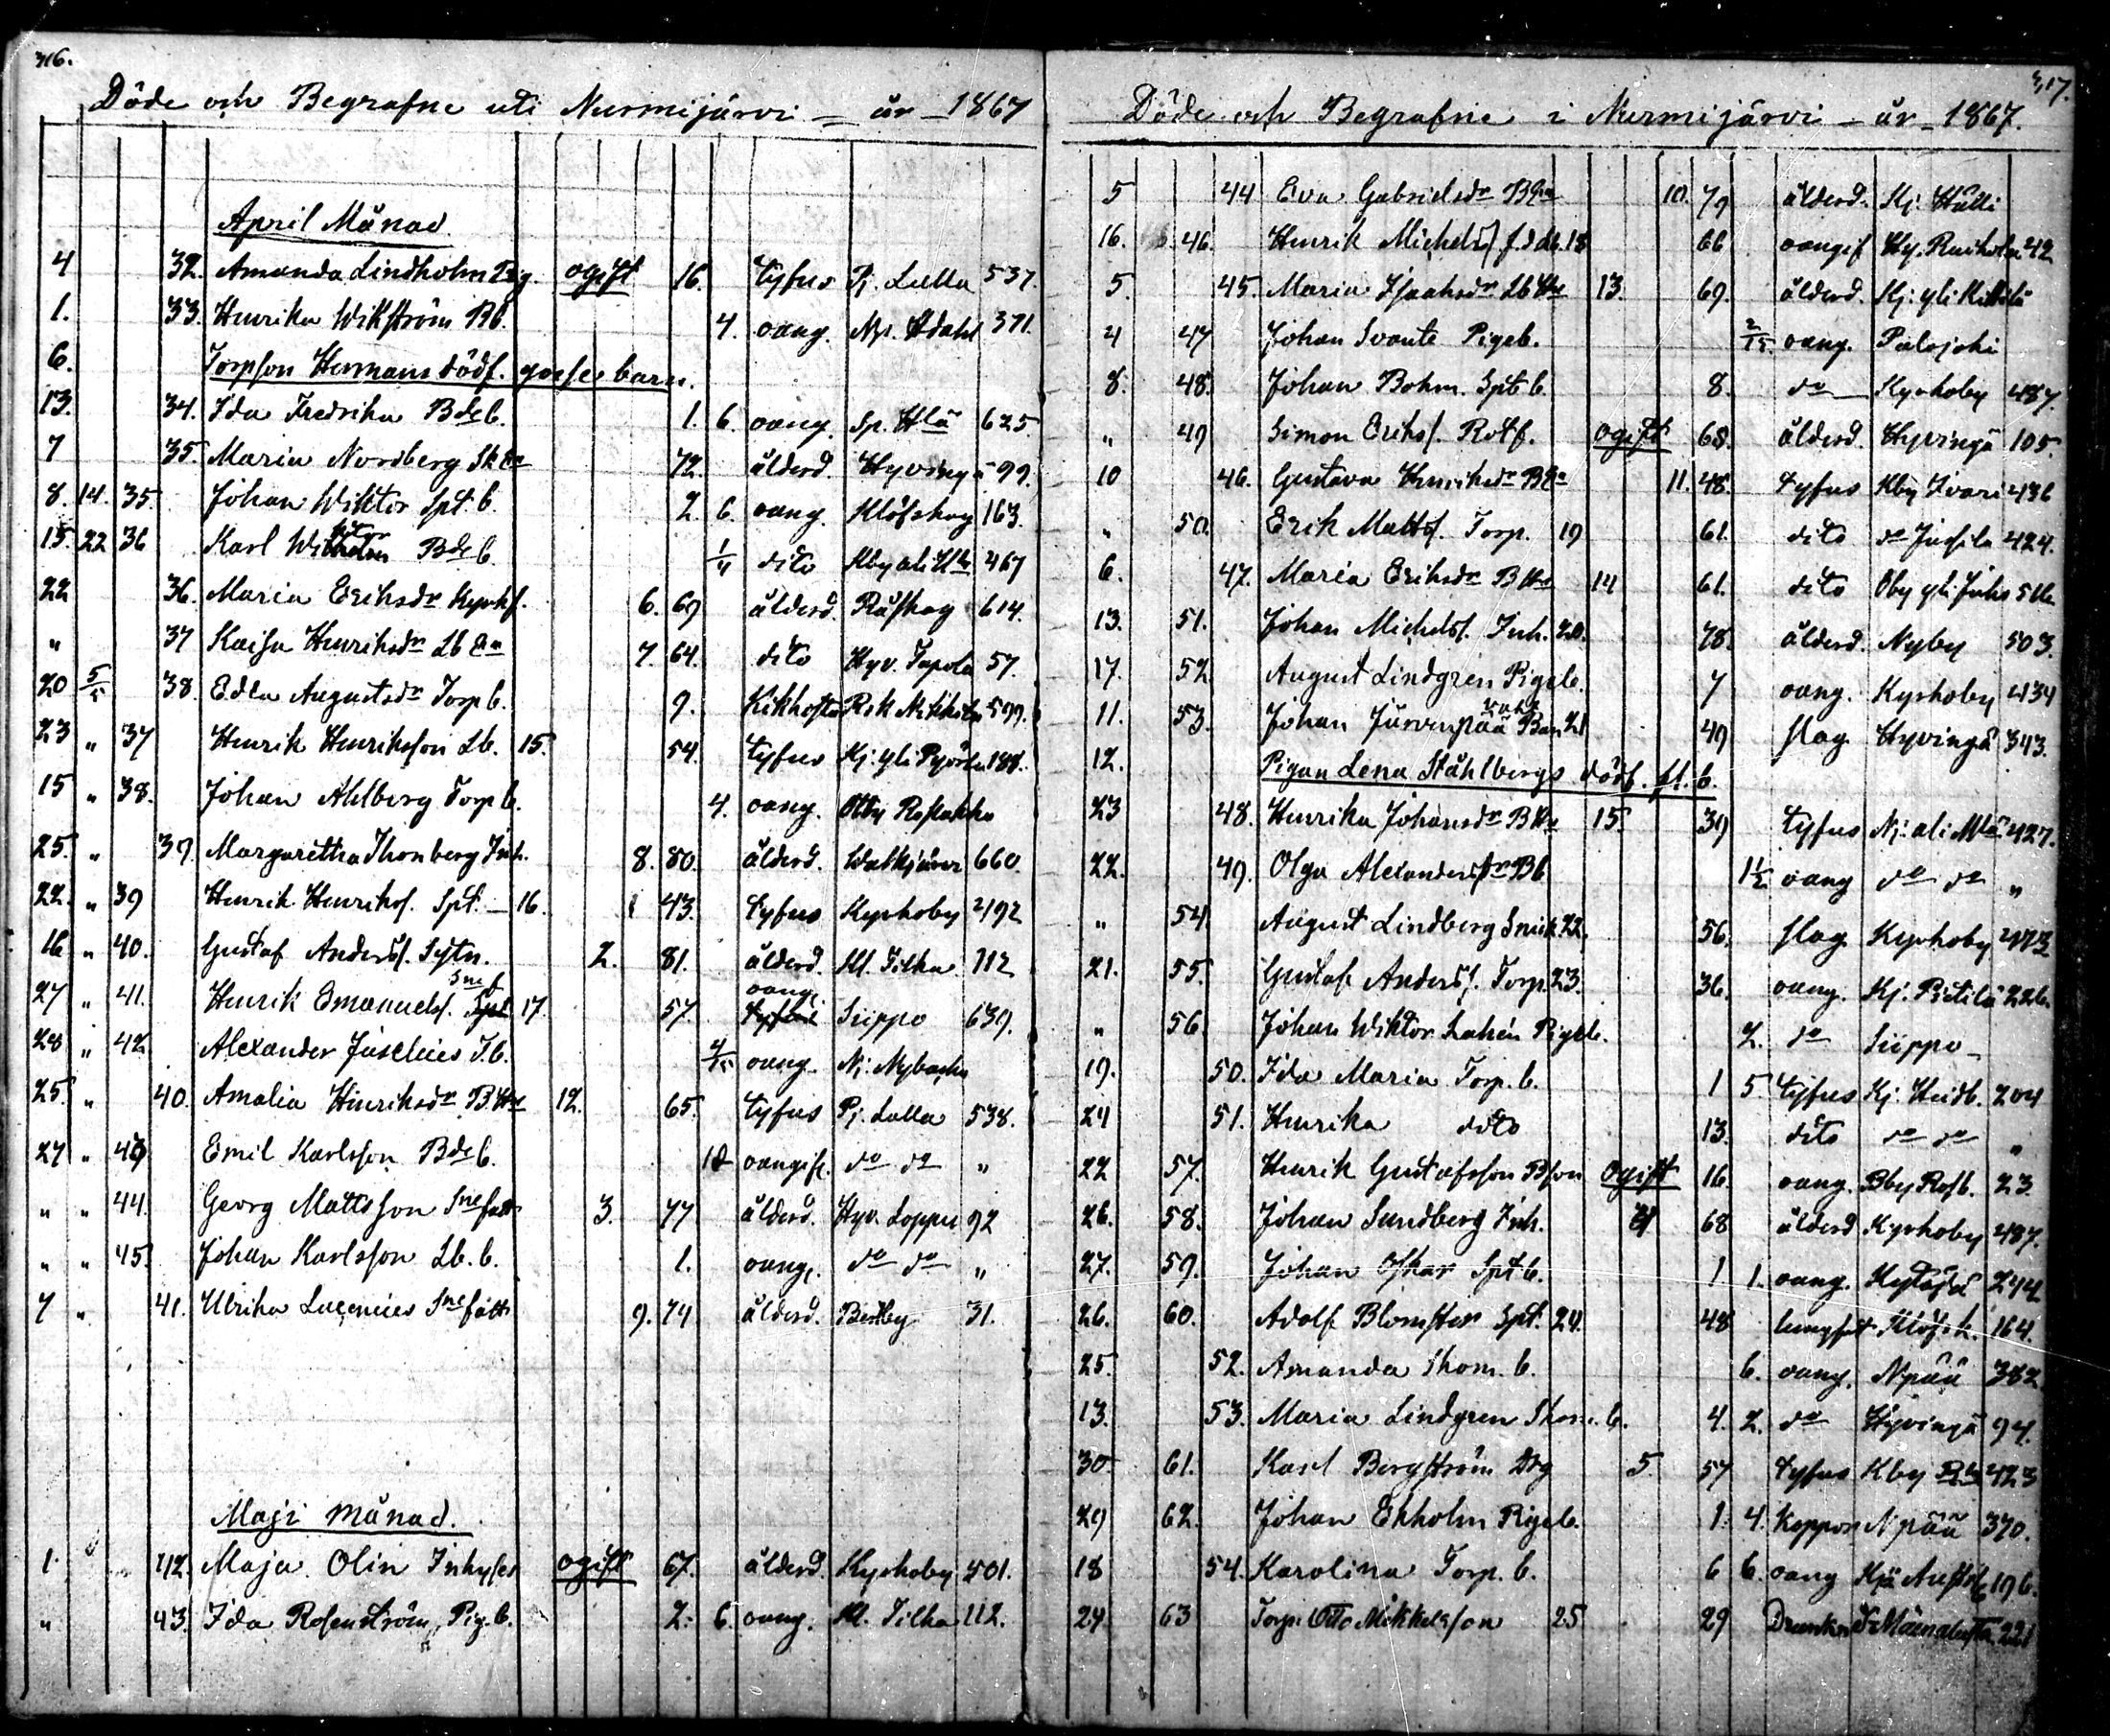 316.
Döde och Begrafne uti Nurmijärvi – år – 1867
April Månad.
4 32. Amanda Lindholm ogift 16. tyfus Pj. Lulla 537.
1. 33. Henrika Wikström Bb. 4. oang. 371.
6. Torpson Hermans dödf. gosse barn.
13. 34. Ida Fredrika Bdeb. 1. 6. oang. 625.
7 35. Maria Nordberg 72. ålderd. Hyvingä 99.
8. 14. 35. Johan Wiktor Spt. b. 2. 6. oang. Klöfskog 163.
15. 22 36 Karl Bdeb. 1/4 dito 467
22 36. Maria Eriksdr Kyrkf. 6. 69 ålderd. Råskog 614.
" 37 Kaisa Henriksdr Lb En 7. 64. dito Hyv. Tapola 57.
20 5/5 38. Edla Augustsdr Torpb. 9. Kikhosta 599.
23 " 37 Henrik Henriksson Lb. 15. 54. tyfus Kj. yli 188.
15 " 38. Johan Ahlberg Torp b. 4. oang.
25. " 39. Margaretha Thonberg Inh. 8. 80. ålderd. 660.
22. " 39 Henrik Henriksf. Spt. – 16. 43. tyfus Kyrkoby 492
16 " 40. Gustaf Andersf. Sytn. 2. 81. ålderd. Kl. Tilka 112
27 " 41. Henrik Emanuelsf. 17. 57. oang. Suippo 639.
28 " 42 Alexander Juselius T.b. 4/5 oang. Nj.
25. " 40. Amalia Hinriksdr B.Hu 12. 65. tyfus Pj. Lulla 538.
27 " 43 Emil Karlsson Bdeb. oangifv. do do "
" " 44. Georg Mattsson Sne fatt 3. 77 ålderd. Hyv. Loppu 92
" " 45. Johan Karlsson Lb. b. 1. oang. do do "
7 " 41. Ulrika Lucenius Sne fatt 9. 74 ålderd. 31.
Maji månad.
1 42. Maja Olin Inhyses ogift 67. ålderd. Kyrkoby 501.
" 43. Ida Rosenström Pig. b. 2. 6. oang. Kl. Tilka 112.
317.
Döde och Begrafne i Nurmijärvi – år – 1867.
5 44 Eva Gabrielsdr BEn 10. 79 ålderd. Kj. Hålli
16. 46. Henrik Michelsf. 18 66 oangif Hy. 42
5. 45. Maria Isaaksdr Lb Hu 13. 69. ålderd. Kj. yli
4 47 Johan Svante Pigeb. 2/15. oang. Palojoki
8. 48. Johan Bohm. Spt b. 8. do Kyrkoby 487.
" 49 Simon Eriksf. Rotf. ogift 68. ålderd. Hyvingä 105.
10 46. Gustava Henriksdr BEn 11. 48. tyfus Kby Ivari 436
" 50. Erik Mattsf. Torp. 19 61. dito do Jussila 424.
6. 47. Maria Eriksdr BHu 14 61. dito Oby yli
13. 51. Johan Michelsf. Inh. 20. 78. ålderd. Nyby 503.
17. 52 August Lindgren Pigeb. 7 oang. Kyrkoby 434
11. 53. Johan Järvenpää Bon 21 49 slag Hyvingä 343.
12. Pigan Lena Ståhlbergs dödf. fl. b.
23 48. Henrika Johansdr BHu 15. 39 tyfus Nj. ali 427.
22. 49. Olga Alexandersdr Bb 1½ oang do do "
" 54. August Lindberg 22. 56. slag Kyrkoby 473
21. 55. Gustaf Andersf. Torp. 23. 36. oang. Kj. Pietilä 226.
" 56. Johan Wiktor Lahén Pigeb. 2. do Suippo
19. 50. Ida Maria Torp. b. 1 5 tyfus Kj. Heidb. 204
24 51. Henrika dito 13. dito do do "
22 57. Henrik Gustafsson Bson ogift 16. oang. Bby 23.
26. 58. Johan Sundberg Inh. 4 68 ålderd Kyrkoby 487.
27. 59. Johan Oskar Spt b. 1 1. oang. Kytäjä 244
26. 60. Adolf Blomster Spt. 24. 48 lungsot Klöfsk. 164.
25. 52. Amanda Thom. b. 6. oang. Npää 382
13. 53. Maria Lindgren b. 4. 2. do Hyvingä 94.
30 61. Karl Bergström Drg 5 57 tyfus Kby 423
29 62. Johan Ekholm Pigeb. 1. 4. Koppor Npää 370.
18 54. Karolina Torp. b. 6 6. oang 196.
24. 63 Torp. Otto Mikkelsson 25 29 221